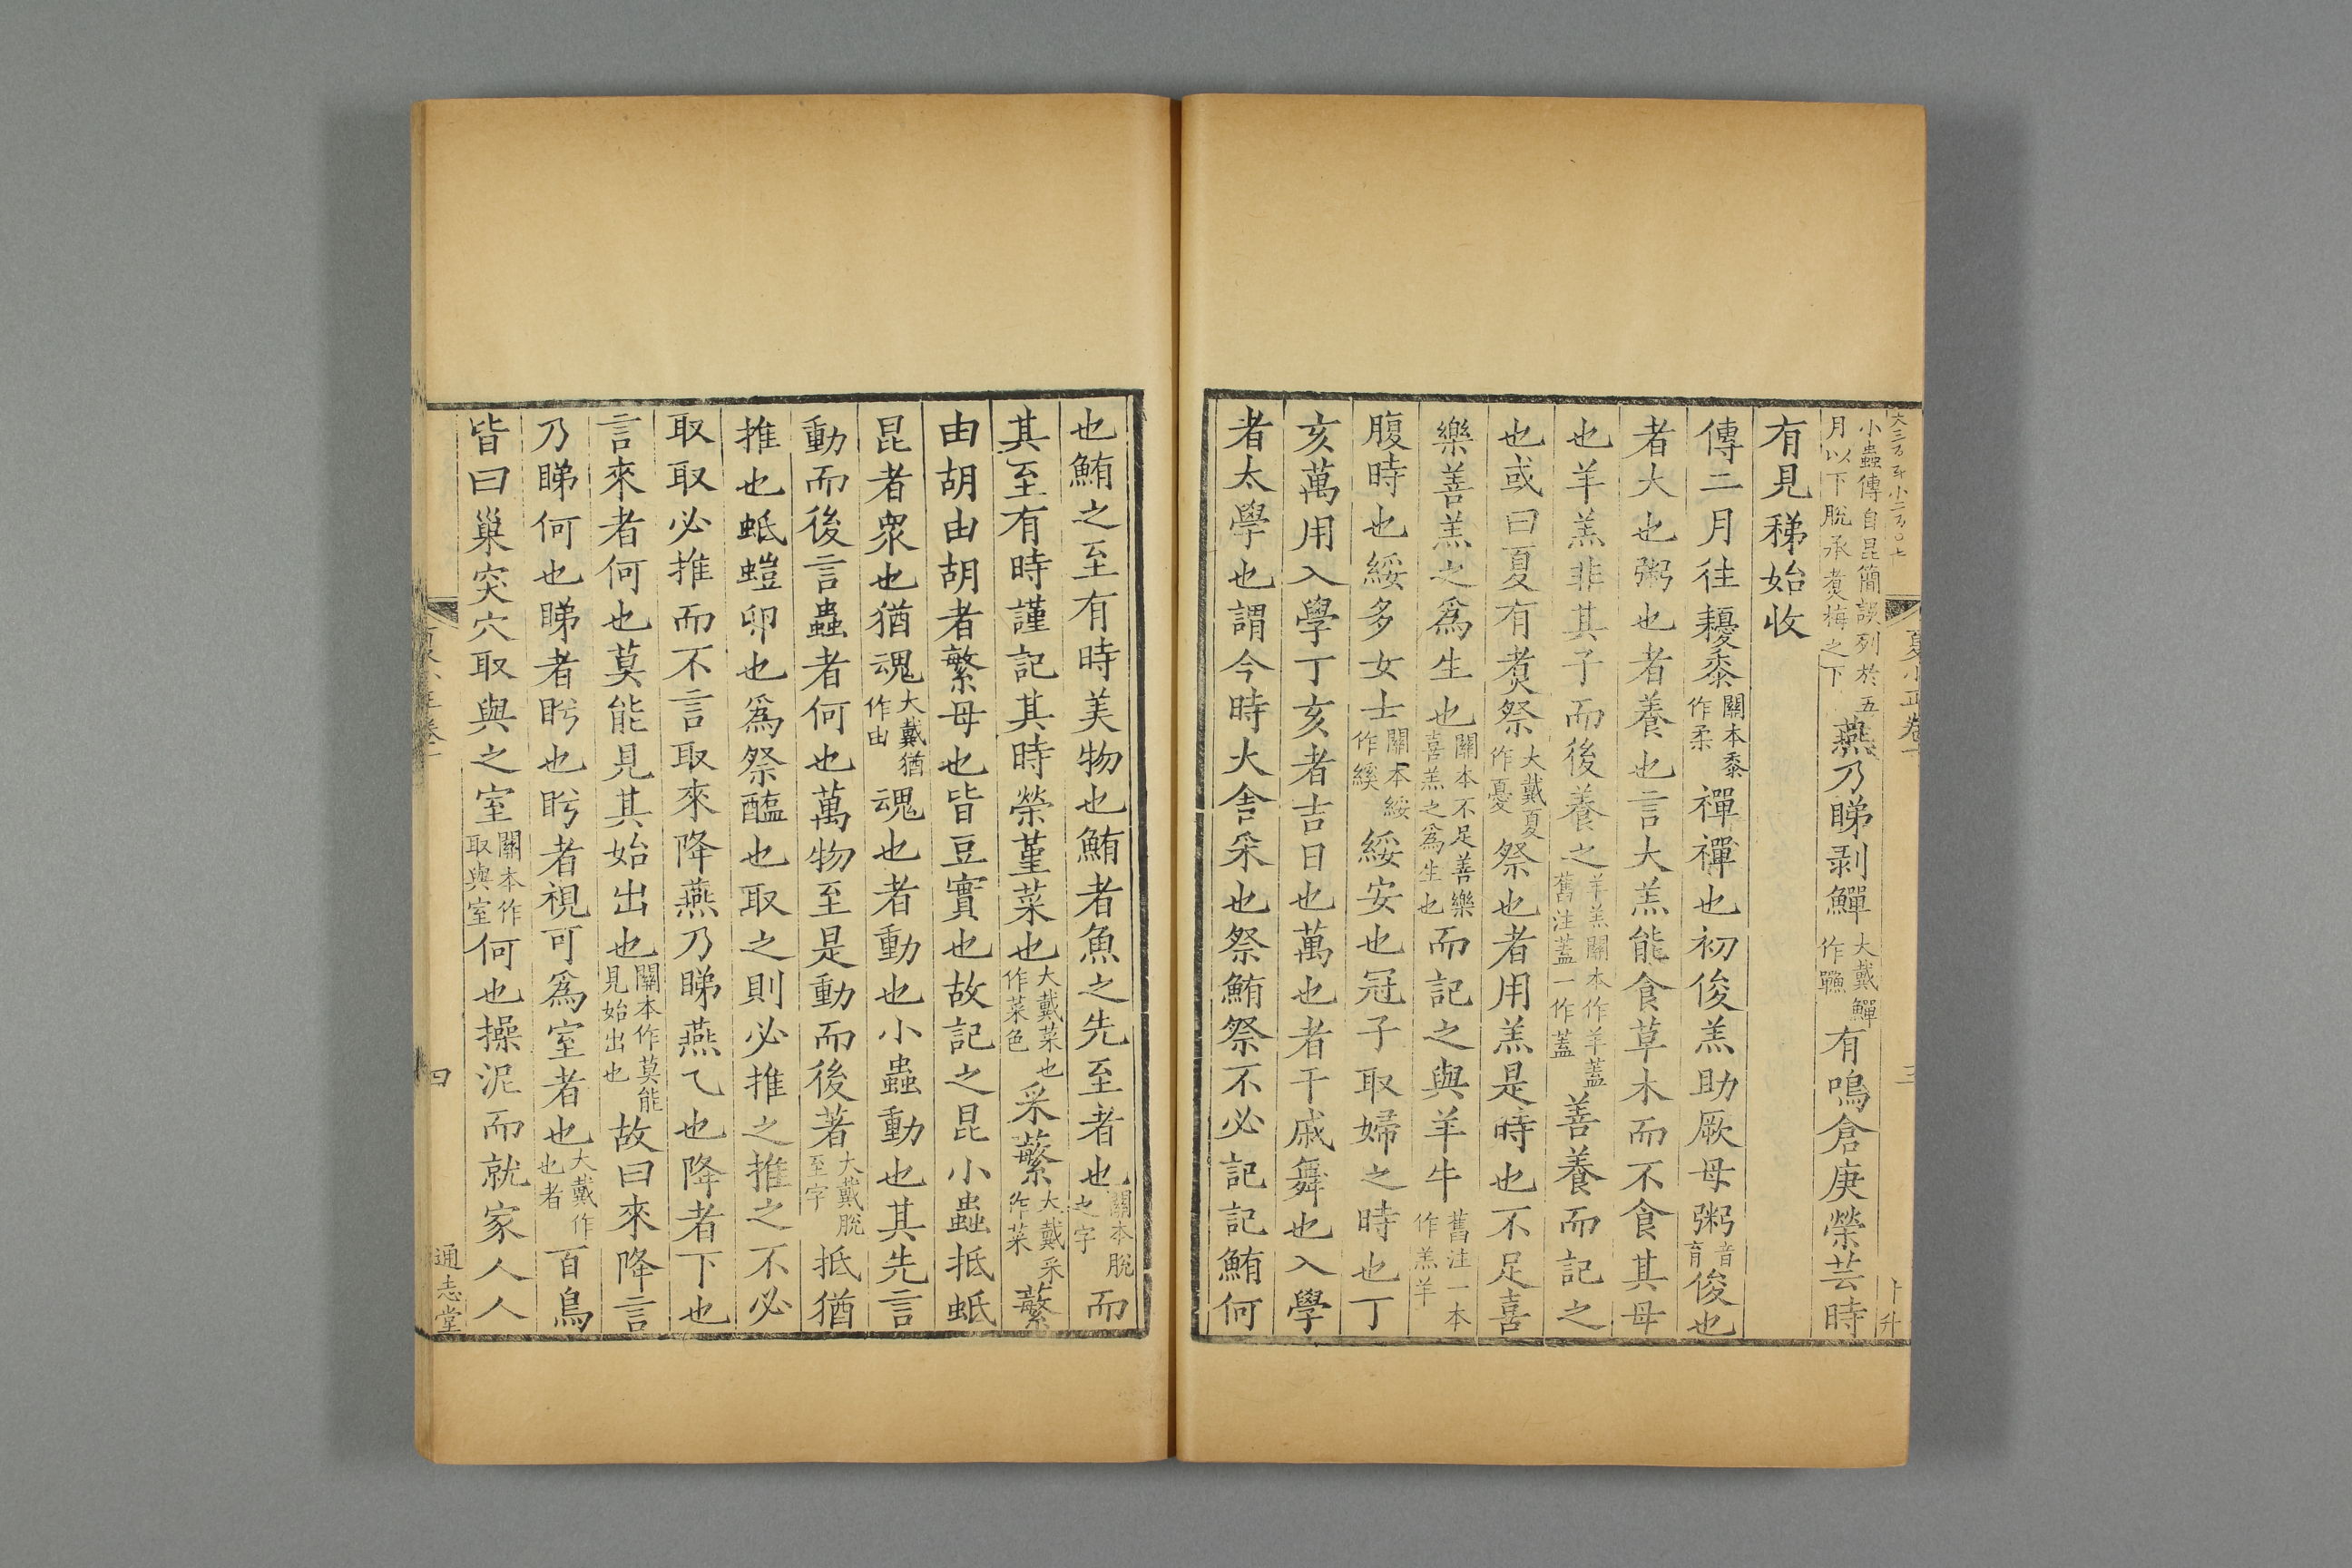 夏小正卷
三
小蟲傳自昆簡誤列於五
月以下脫承煑梅之下
燕乃睇剥鱓
大戴鱓
作䱉
有鳴倉庚榮芸時
有見稊始收
傳二月往耰黍
關本黍
作柔
禪禪也初俊羔助厥母粥
音
育
俊也
者大也粥也者養也言大羔能食草木而不食其母
也羊羔非其子而後養之
羊羔關本作羊蓋
舊注蓋一作蓋
善養而記之
也或曰夏有煑祭
大戴夏
作憂
祭也者用羔是時也不足喜
樂善羔之爲生也
關本不足善樂
喜羔之爲生也
而記之與羊牛
舊注一本
作羔羊
腹時也綏多女士
關本綏
作綏
綏安也冠子取婦之時也丁
亥萬用入學丁亥者吉日也萬也者干戚舞也入學
者太學也謂今時大舍采也祭鮪祭不必記記鮪何
也鮪之至有時美物也鮪者魚之先至者也
關本脫
之字
而
其至有時謹記其時榮堇菜也
大戴菜也
作菜色
采蘩
大戴采
作菜
蘩
由胡由胡者繁母也皆豆實也故記之昆小蟲抵蚳
昆者衆也猶魂
大戴猶
作由
魂也者動也小蟲動也其先言
動而後言蟲者何也萬物至是動而後著
大戴脫
至字
抵猶
推也蚳螘卵也爲祭醢也取之則必推之推之不必
取取必推而不言取來降燕乃睇燕乙也降者下也
言來者何也莫能見其始出也
關本作莫能
見始出也
故曰來降言
乃睇何也睇者眄也眄者視可爲室者也
大戴作
也者
百鳥
皆曰巢突穴取與之室
關本作
取與室
何也操泥而就家人人
四
通志堂